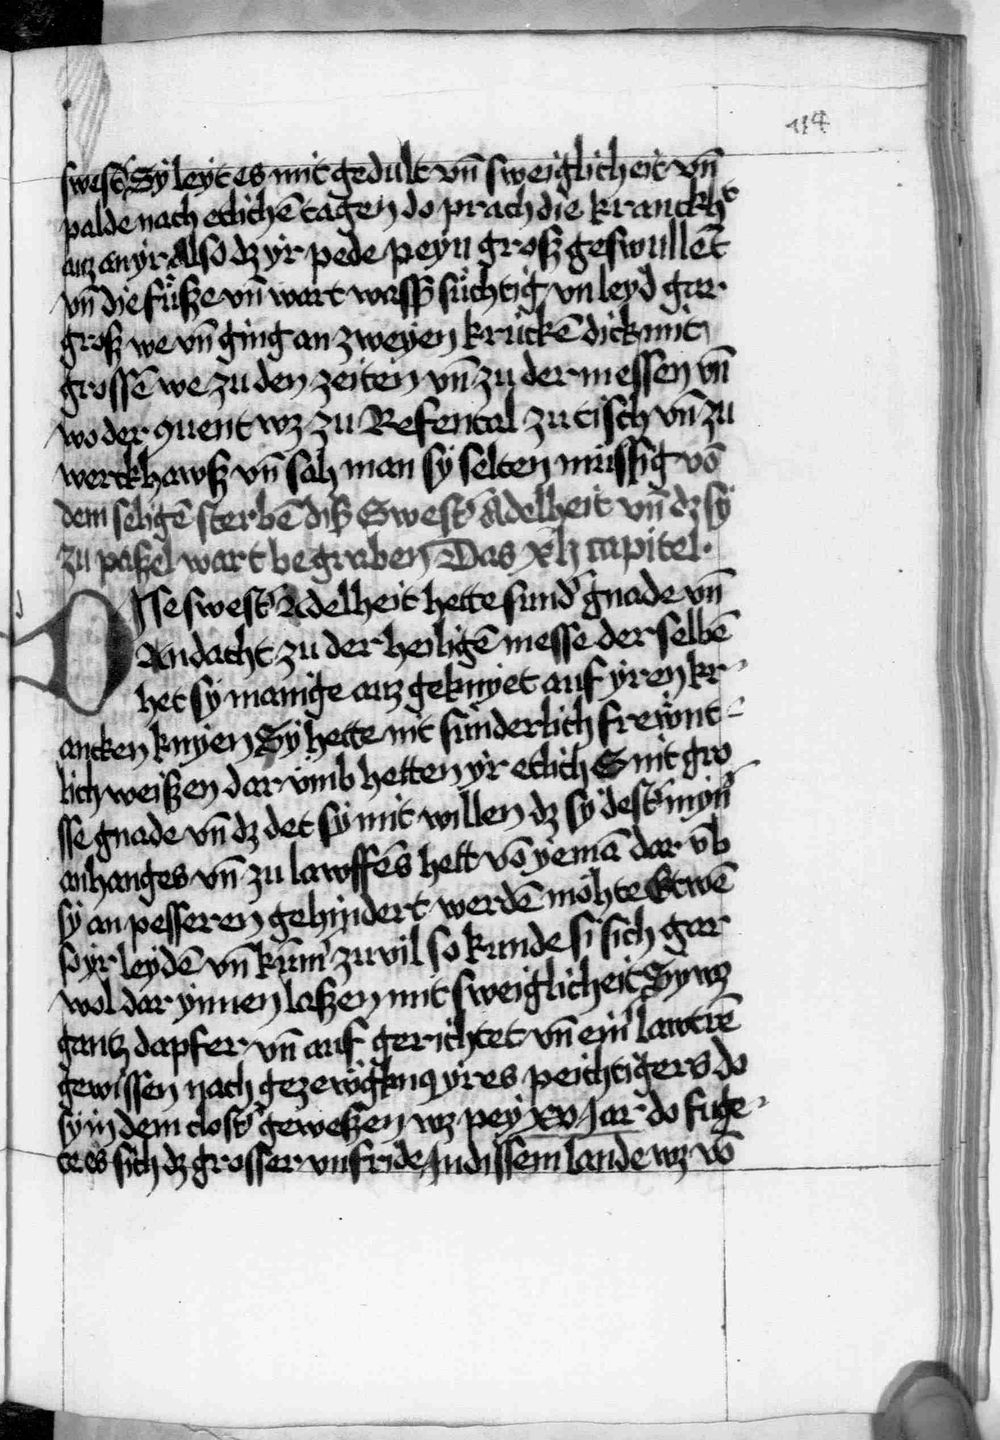 114
swest̄ Sy leyt es mit gedult vn̄ sweiglicheit vn̄
palde nach etlichē tagen do prach die kranckh͛t
auz an yr Also dz yr pede peyn groß geswullēt
vn̄ die füsze vn̄ wart wasß süchtig vn leyd gar
groß we vn̄ ging an zweyen kruckē dick mit
grossē we zu den zeiten vn̄ zu der messen vn̄
wo der ꝯuent wz zu Refental zu tisch vn̄ zu
werckhawß vn̄ sah man sy selten müssig vō
dem seligē sterbē diß Swest̄ Adelheit vn̄ dz sy
zu paßel wart begraben Das xlj capitel·
DIse swest̄ Adelheit hette sund͛ gnade vn̄
Andacht zu der heiligē messe der selbē
het sy manige auz geknyet auf yren kr-
ancken knyen Sy hette nit sünderlich frewnt-
lich weißen dar vmb hetten yr etlich S nit gro-
sse gnade vn̄ dz det sy mit willen dz sy dest̄ myn͛
anhanges vn̄ zu lawffēs hett vō yemā dar v̄b
sy an pesseren gehindert werdē möhte Etwē
so yr leydē vn̄ kum͛ zu vil so kunde si sich gar
wol dar ynnen laßen mit sweiglicheit Sy wz
gantz dapfer vn̄ auf gerichtet vn̄ ein͛ lawtrē
gewissen nach gezewgknuß yres peichtigers do
sy in dem clost̄ geweßen wz pey xv Jar do fuge-
te es sich dz grosser vnfride Jn dissem lande wz vō